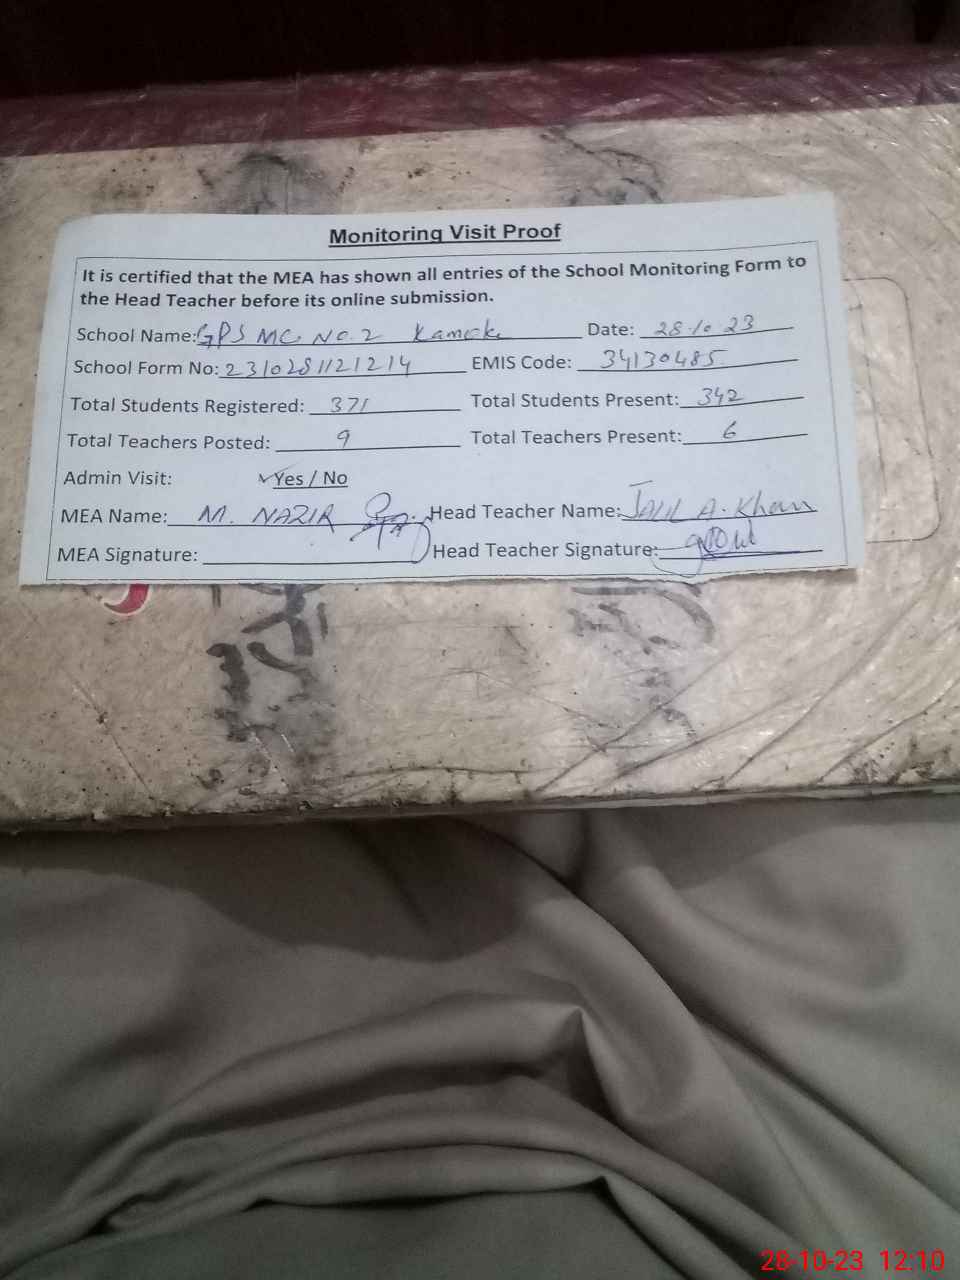 Monitoring Visit Proof
It is certified that the MEA has shown all entries of the School Monitoring Form to
the Head Teacher before its online submission.
School Name: GPS MC No. 2 Kamoke Date: 28.10.23
School Form No: 2310281121214 EMIS Code: 34130485
Total Students Registered: 371 Total Students Present: 342
Total Teachers Posted: 9 Total Teachers Present: 6
Admin Visit: ✓Yes / No
MEA Name: M. NAZIR Head Teacher Name: A. Khan
MEA Signature: Head Teacher Signature:
28-10-23 12:10